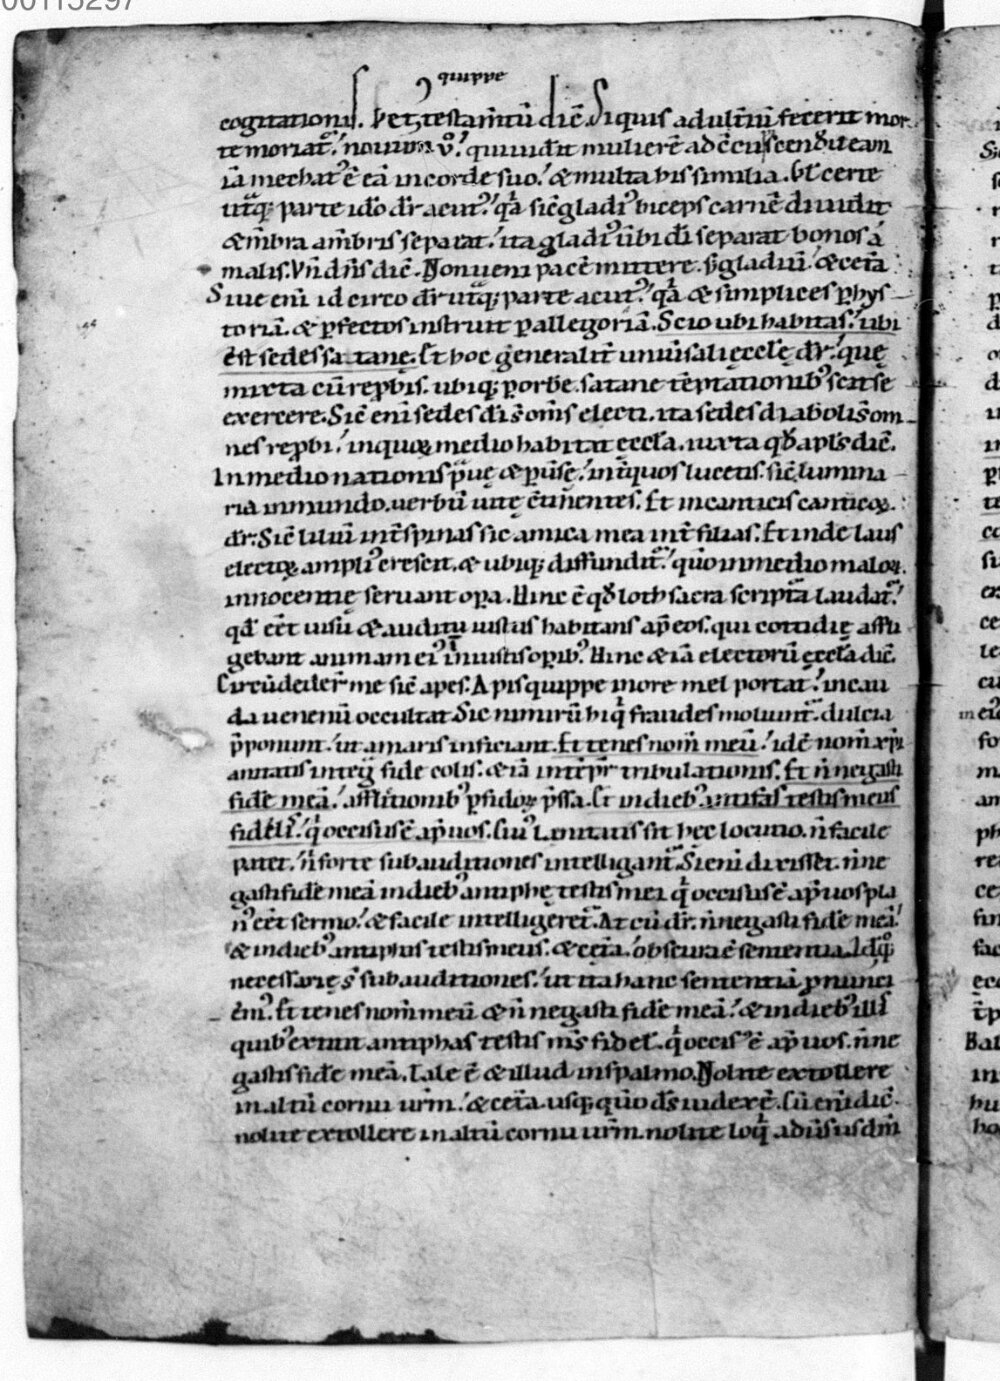 00115297
quippe
cogitationis. Vet⁊ testam̄tū dic̄. Siquis adult̄iū fecerit mor
te moriat᷑. nouum v̊. qui uid̄it mulierē ad c̄cupiscendū eam
iā mechat᷑ ē eā in corde suo. & multa his similia. Vl̄ certe
utͣq; parte ido dr̄ acut᷒. qͣa sic̄ gladi᷒ biceps carnē diuidit
& mēbra a mēbris separat. ita gladi᷒ ūbi dī separat bonos á
malis. Vn̄ dn̄s dic̄. Non ueni pacē mittere. s; gladiū. & cet̄a
Siue eni id circo dr̄ utͣq; parte acut᷒. qͣa & simplices ꝑ hys
toriā. & ꝑfectos instruit ꝑ allegoriā. Scio ubi habitas. ubi
est sedes satanę. Et hoc ḡeneralit̄ uniūsali ęccl̄ę dr̄. quę
mixta cū rep̱bis. ubiq; ꝑ orbē. satane tēptationib᷒ scit se
exercere. Sic̄ eni sedes dī s̄ om̄s electi. ita sedes diaboli s̄ om
nes rep̱bi. in quoꝝ medio habitat ęccl̄a. iuxta qd̄ apl̄s dic̄.
In medio nationis p̱uę & ꝑūsę. int̄ quos lucetis. sic̄ lumina
ria in mundo. uerbū uitę c̄tinentes. Et in canticis canticoꝝ.
dr̄. Sic̄ liliū int̄ spinas sic amica mea int̄ filias. Et inde laus
electoꝝ ampli᷒ crescit. & ubiq; diffundit᷑. qm̄ in medio maloꝝ.
innocentię seruant opa. Hinc ē qd̄ loth sacra scriptͣa laudat᷑.
qd̄ eēt uisu & auditu iustus habitans ap̄ eos. qui cottidie affli
gebant animam ei᷒ iniustis opib᷒. Hinc & iā electorū ęccl̄a dic̄.
Circūdeder̄ me sic̄ apes. Apis quippe more mel portat. in cau
da uenenū occultat. Sic nimirū hi q̄ fraudes moliunt᷑. dulcia
p̄ponunt. ut amaris inficiant. Et tenes nom̄ meū. id ē nom̄ xp̄i
anitatis integͣ fide colis. & iā int̄ p̄r̄ tribulationis. Et n̄ negasti
fidē meā. afflictionib᷒ ꝑfidoꝝ p̄ssa. Et in dieb᷒ antifas testis meus
fidelis. q̄ occisus ē ap̄ uos. Cui᷒ l̄mitatis sit hęc locutio. n̄ facile
patet. n̄ forte subauditiones intelligant᷑. Si eni dixisset. n̄ ne
gasti fidē meā in dieb᷒ antiphę testis mei q̄ occisus ē ap̄ uos pla
n᷒ eēt sermo. & facile intelligeret᷑. At cū dr̄. n̄ negasti fidē meā.
& in dieb᷒ antiphas testis meus. & cet̄a. obscura ē sententia. Idq̊;
necessarię s̄ subauditiones. ut ita hanc sententiā p̱nunci
em᷒. Et tenes nom̄ meū & n̄ negasti fidē meā. & in dieb᷒ illis
quib᷒ extitit antiphas testis m̄s fidel̄. q̄ occis᷒ ē ap̄ uos. n̄ ne
gastis fidē meā. Tale ē & illud in psalmo. Nolite extollere
in altū cornu ur̄m. & cet̄a. usq; qm̄ d̄s iudex ē. Cū eni dic̄.
nolite extollere in altū cornu ur̄m. nolite loq̄ adūsus dm̄